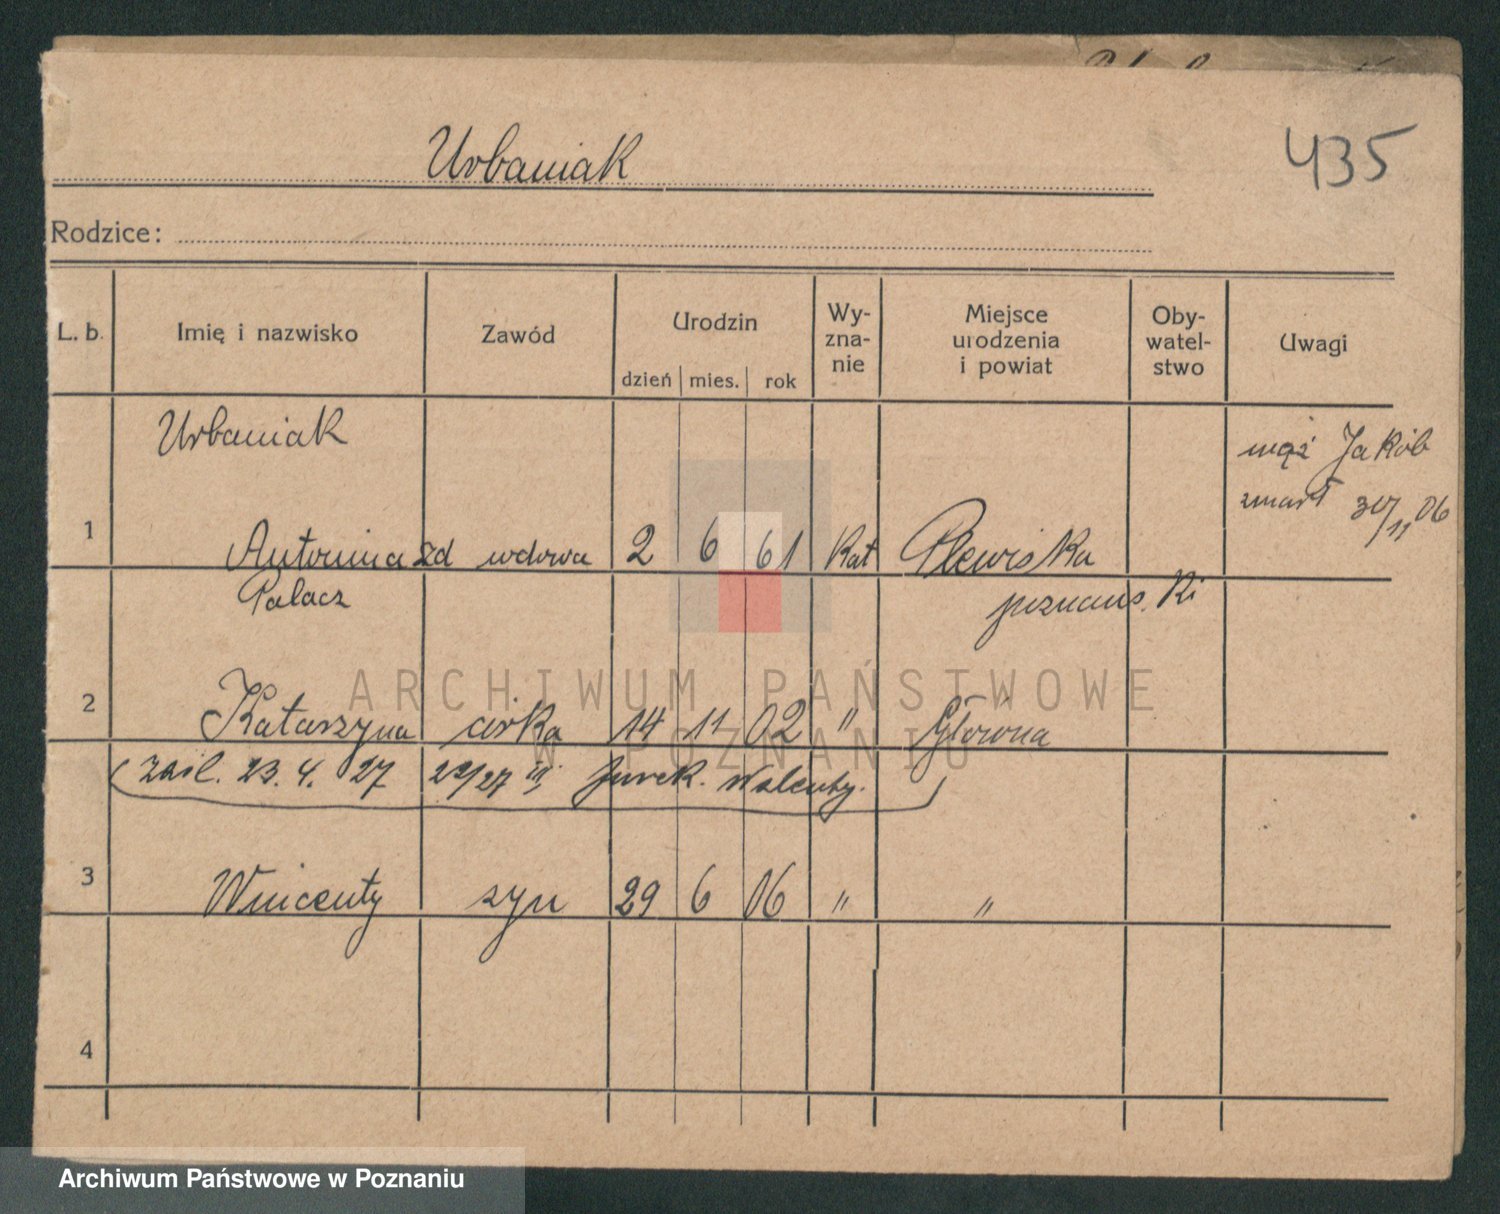 Urbaniak
435
Rodzice:
L. b. Imię i nazwisko Zawód Urodzin dzień mies. rok Wy-zna-nie Miejsce urodzenia i powiat Oby-watel-stwo Uwagi
Urbaniak mąż Jakób
zmarł 30/11 06
1 Antonina zd wdowa 2 6 61 Kat Plewiska
Palacz poznans. Ki
2 Katarzyna córka 14 11 02 " Główna
zaśl. 23. 4. 27 Jurek. Walenty.
3 Wincenty syn 29 6 06 " "
4
ARCHIWUM PAŃSTWOWE
W POZNANIU
Archiwum Państwowe w Poznaniu